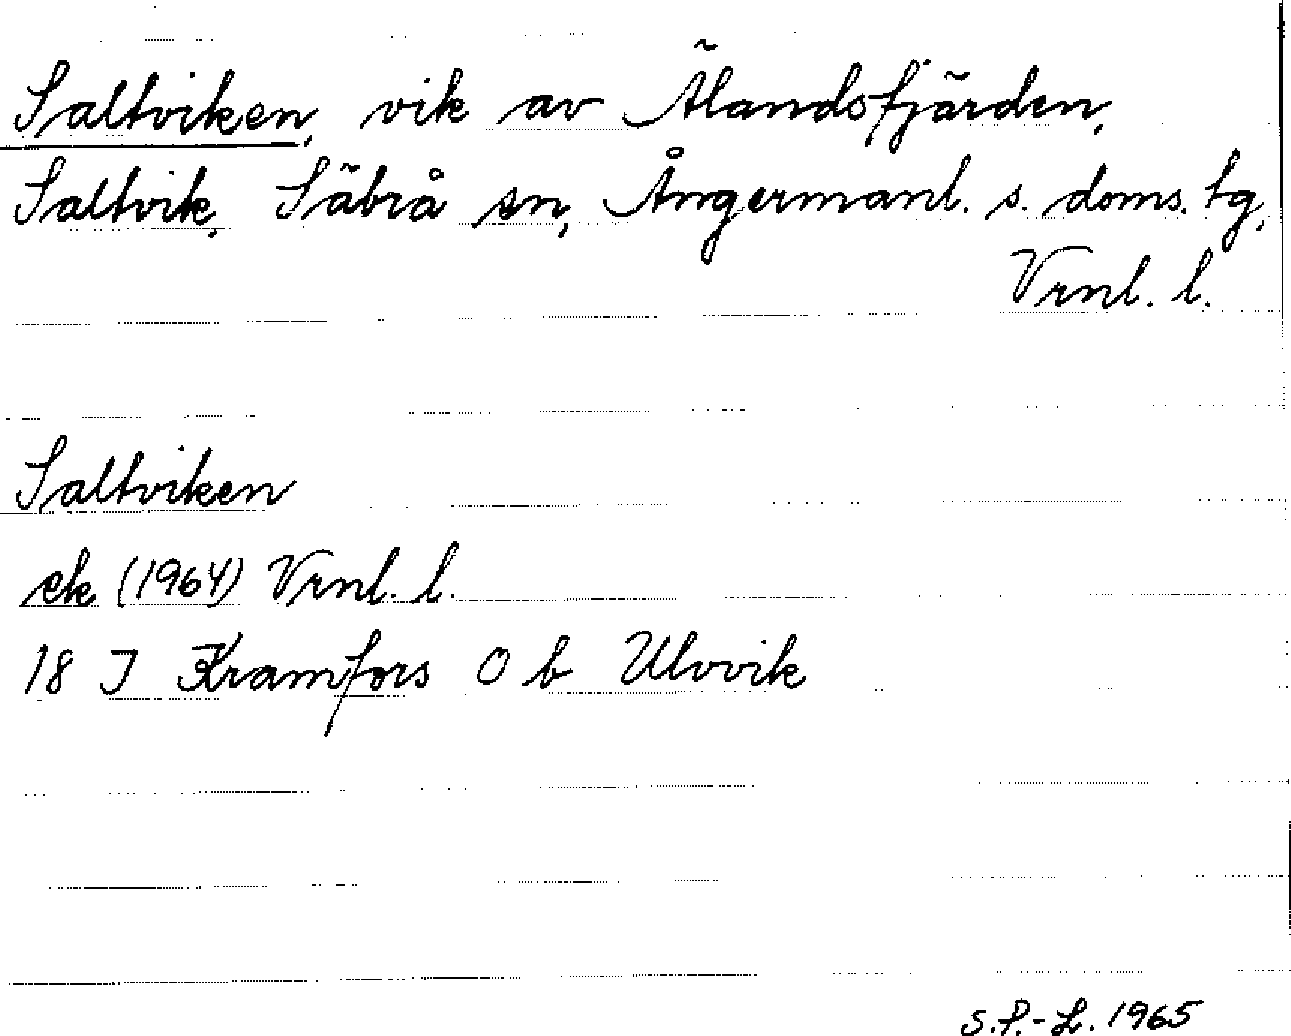 Saltviken, vik av Älandsfjärden,
Saltvik, Säbrå sn, Ångermanl. s. doms. tg,
Vrnl. l.
Saltviken
ek (1964) Vrnl. l.
18 I Kramfors 0 b Ulvvik
S.P.-L. 1965